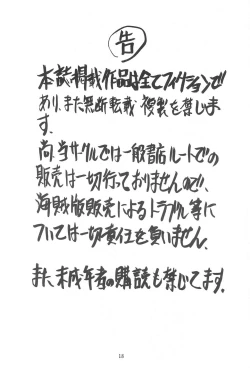 告
本誌掲載作品は全てフィクションで
あり、また無断転載・複製を禁じま
す。
尚、当サークルでは一般書店ルートでの
販売は一切行っておりませんので、
海賊版販売によるトラブル等に
ついては一切責任を負いません。
また、未成年者の購読も禁じてます。
18